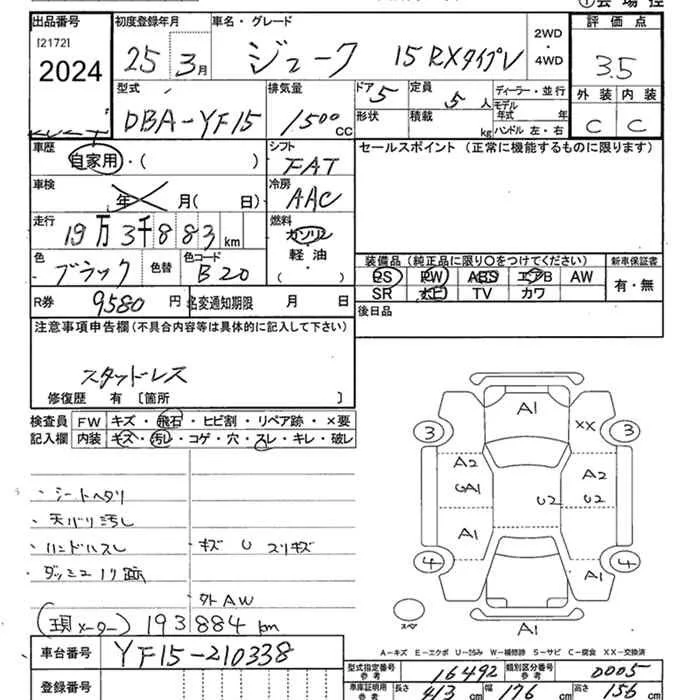 ①会場控
出品番号 初度登録年月 車名・グレード 2WD・4WD 評価点
[2172]
2024 25 3月 ジューク 15RXタイプV 3.5
型式 排気量 ドア 定員 ディーラー・並行 外装 内装
DBA-YF15 1500cc 5 5人 モデル年式 年 C C
形状 積載 kg ハンドル 左・右
車歴 シフト セールスポイント (正常に機能するものに限ります)
自家用・( ) FAT
車検 冷房
年 月( 日) AAC
走行 燃料
19万3千883km ガソリン
軽・油
( )
色 色替 色コード 装備品 (純正品に限り○をつけてください) 新車保証書
ブラック B20 PS PW ABS エアB AW 有・無
SR TV カワ
R券 9580円 名変通知期限 月 日 後日品
注意事項申告欄(不具合内容等は具体的に記入して下さい)
スタッドレス
修復歴 有 〔箇所 〕
検査員 FW キズ・飛石・ヒビ割・リペア跡・×要
記入欄 内装 キズ・汚レ・コゲ・穴・スレ・キレ・破レ
・シートヘタリ
・天バリ汚し
・ハンドルスレ ・キズ U スリキズ
・ダッシュノリ跡
・外AW
(現メーター) 193884km
A1
3 XX 3
A2 A2
GA1 U2 U2
A1 A
4 A1 4
A1
スペア
A-キズ E-エクボ U-凹み W-補修跡 S-サビ C-腐食 XX-交換済
車台番号 YF15-210338
登録番号
型式指定番号 参考 16492 類別区分番号 参考 0005
車庫証明用 参考 長さ 413cm 幅 176cm 高さ 156cm